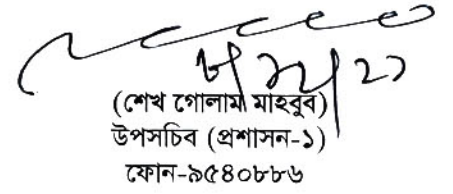 (শেখ গোলাম মাহবুব)
উপসচিব (প্রশাসন-১)
ফোন-৯৫৪০৮৮৬